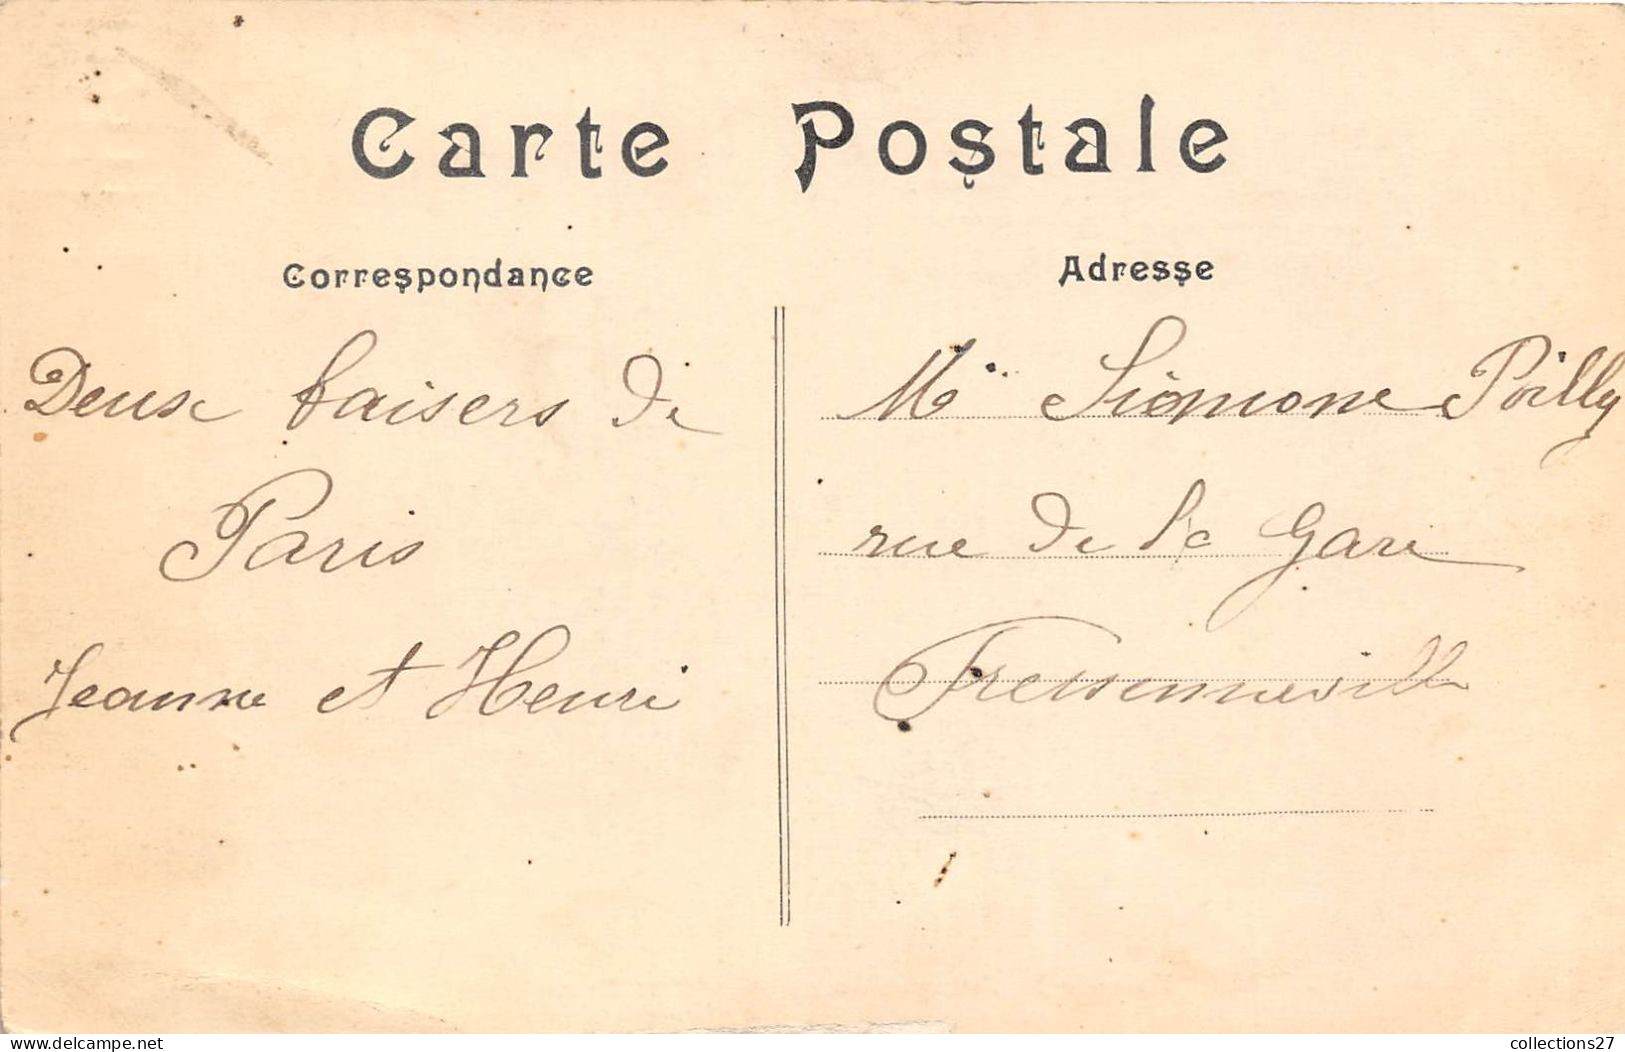 Carte Postale
Correspondance
Deux baisers de
Paris
Jeanne et Henri
Adresse
Mlle Simone Poilly
rue de la Gare
Fressenneville
delcampe.net
collections27